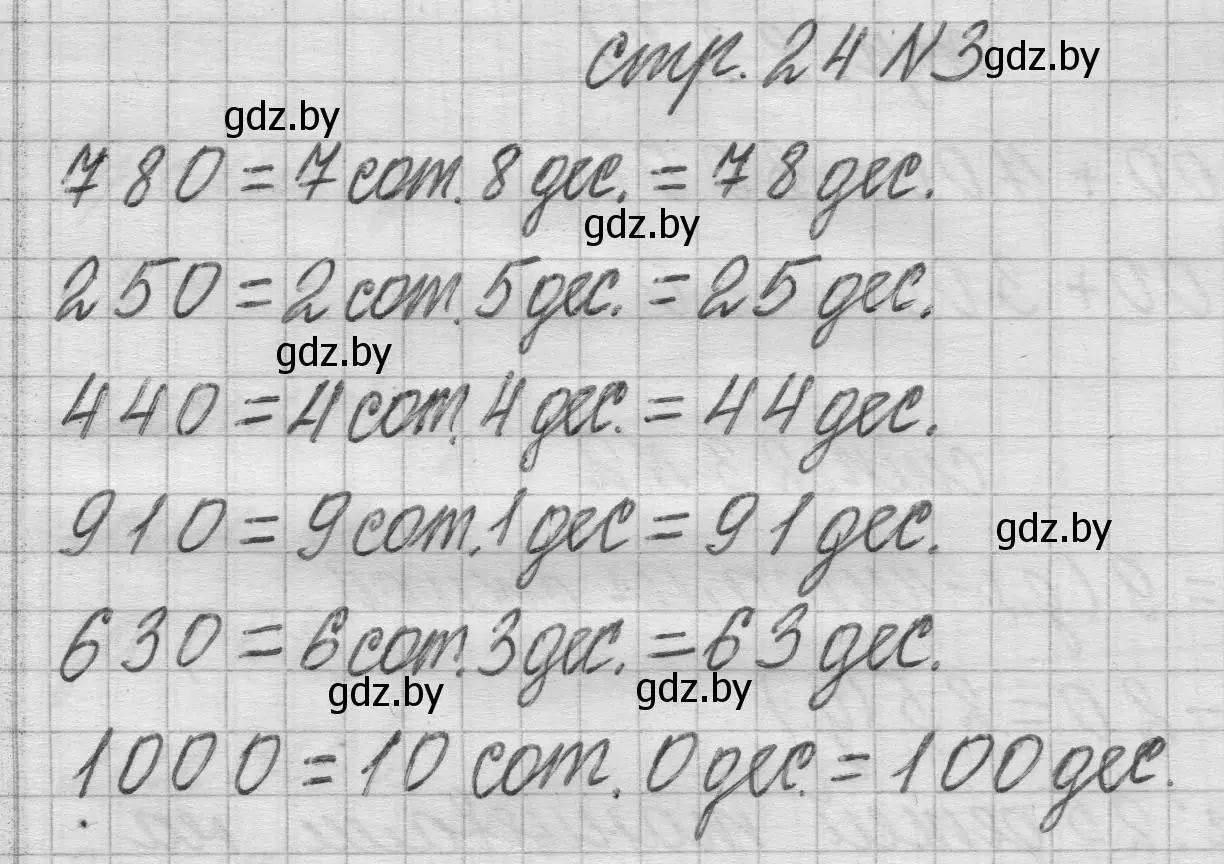 стр. 24 N 3 gdz.by
gdz.by
780 = 7 сот. 8 дес. = 78 дес.
gdz.by
250 = 2 сот. 5 дес. = 25 дес.
gdz.by
440 = 4 сот. 4 дес. = 44 дес.
910 = 9 сот. 1 дес = 91 дес. gdz.by
630 = 6 сот. 3 дес. = 63 дес.
gdz.by gdz.by
1000 = 10 сот. 0 дес. = 100 дес.